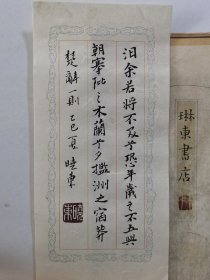 汩余若将不及兮恐年歲之不五與
朝搴阰之木蘭兮夕攬洲之宿莽
楚辭一則 乙巳夏 曉東
曉東
琳東書店